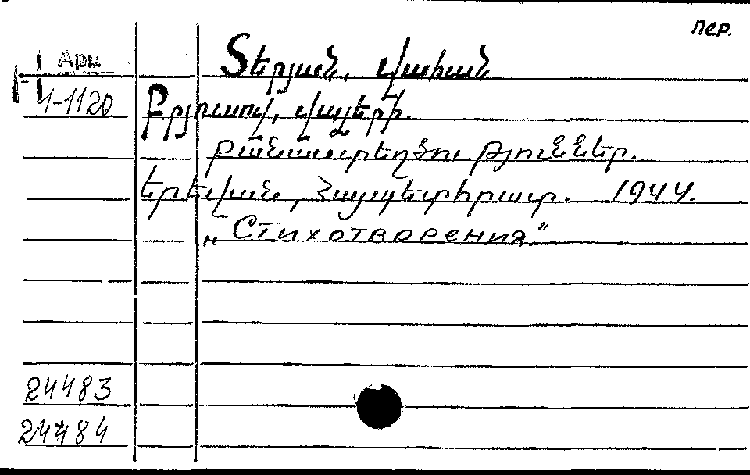 пер.
Арм
Տերյան, Վահան
1-1120
Բրյուսով, Վալերի.
Բանաստեղծություններ.
Երեվան, Հայպետհրատ. 1944.
„Стихотворения"
24483
24484